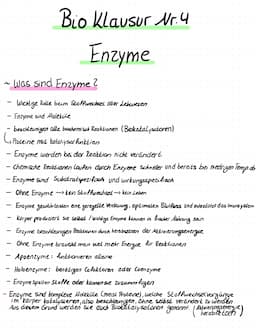 Bio Klausur Nr.4
Enzyme
~ Was sind Enzyme?
- Wichtige Rolle beim Stoffwechsel aller Lebewesen
- Enzyme sind Moleküle
- beschleunigen alle biochemisch Reaktionen (Biokatalysatoren)
Proteine mit katalysefunktion
- Enzyme werden bei der Reaktion nicht verändert
- chemische Reaktionen laufen durch Enzyme schneller und bereits bei niedrigen Temp. ab
- Enzyme sind Substratspezifisch und wirkungsspezifisch
- Ohne Enzyme → kein Stoffwechsel → kein Leben
- Enzyme gewährleisten eine geregelte Verdauung, optimalen Blutfluss und unterstützt das Immunsystem
- Körper produziert sie selbst / wichtige Enzyme können in finaler Nahrung sein
- Enzyme beschleunigen Reaktionen durch herabsetzen der Aktivierungsenergie
- Ohne Enzyme braucht man viel mehr Energie für Reaktionen
- Apoenzyme: funktionieren alleine
- Holoenzyme: benötigen Cofaktoren oder Coenzyme
- Enzyme spalten Stoffe oder können sie zusammenfügen
- Enzyme sind komplexe Moleküle (meist Proteine), welche Stoffwechselvorgänge
im Körper katalysieren, also beschleunigen, ohne selbst verändert zu werden
Aus diesem Grund werden sie auch Biokatalysatoren genannt (Aktivierungsenergie